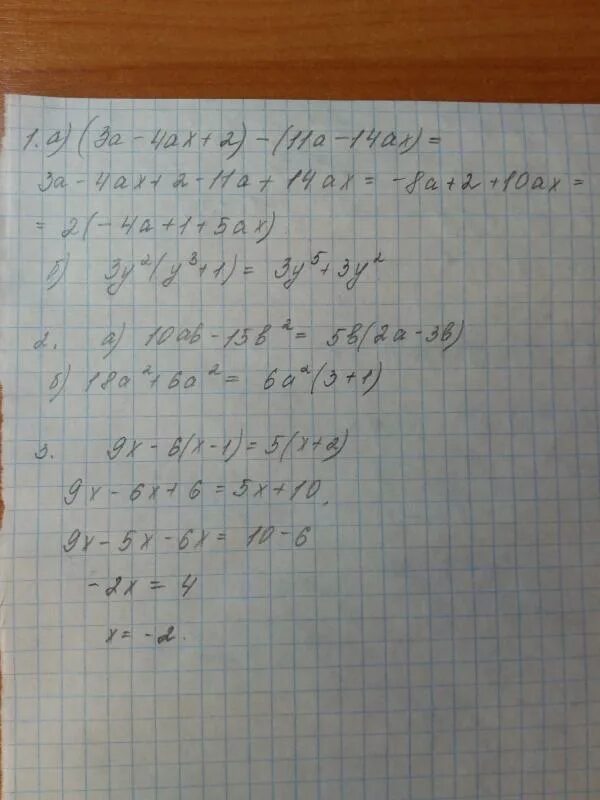 1. а) (3а - 4ах + 2) - (11а - 14ах) =
3а - 4ах + 2 - 11а + 14ах = -8а + 2 + 10ах =
= 2(-4а + 1 + 5ах)
б) 3y²(y³+1) = 3y⁵ + 3y²
2. а) 10ab - 15b² = 5b(2a - 3b)
б) 18a² + 6a² = 6a²(3+1)
3. 9x - 6(x-1) = 5(x+2)
9x - 6x + 6 = 5x + 10
9x - 5x - 6x = 10 - 6
-2x = 4
x = -2.